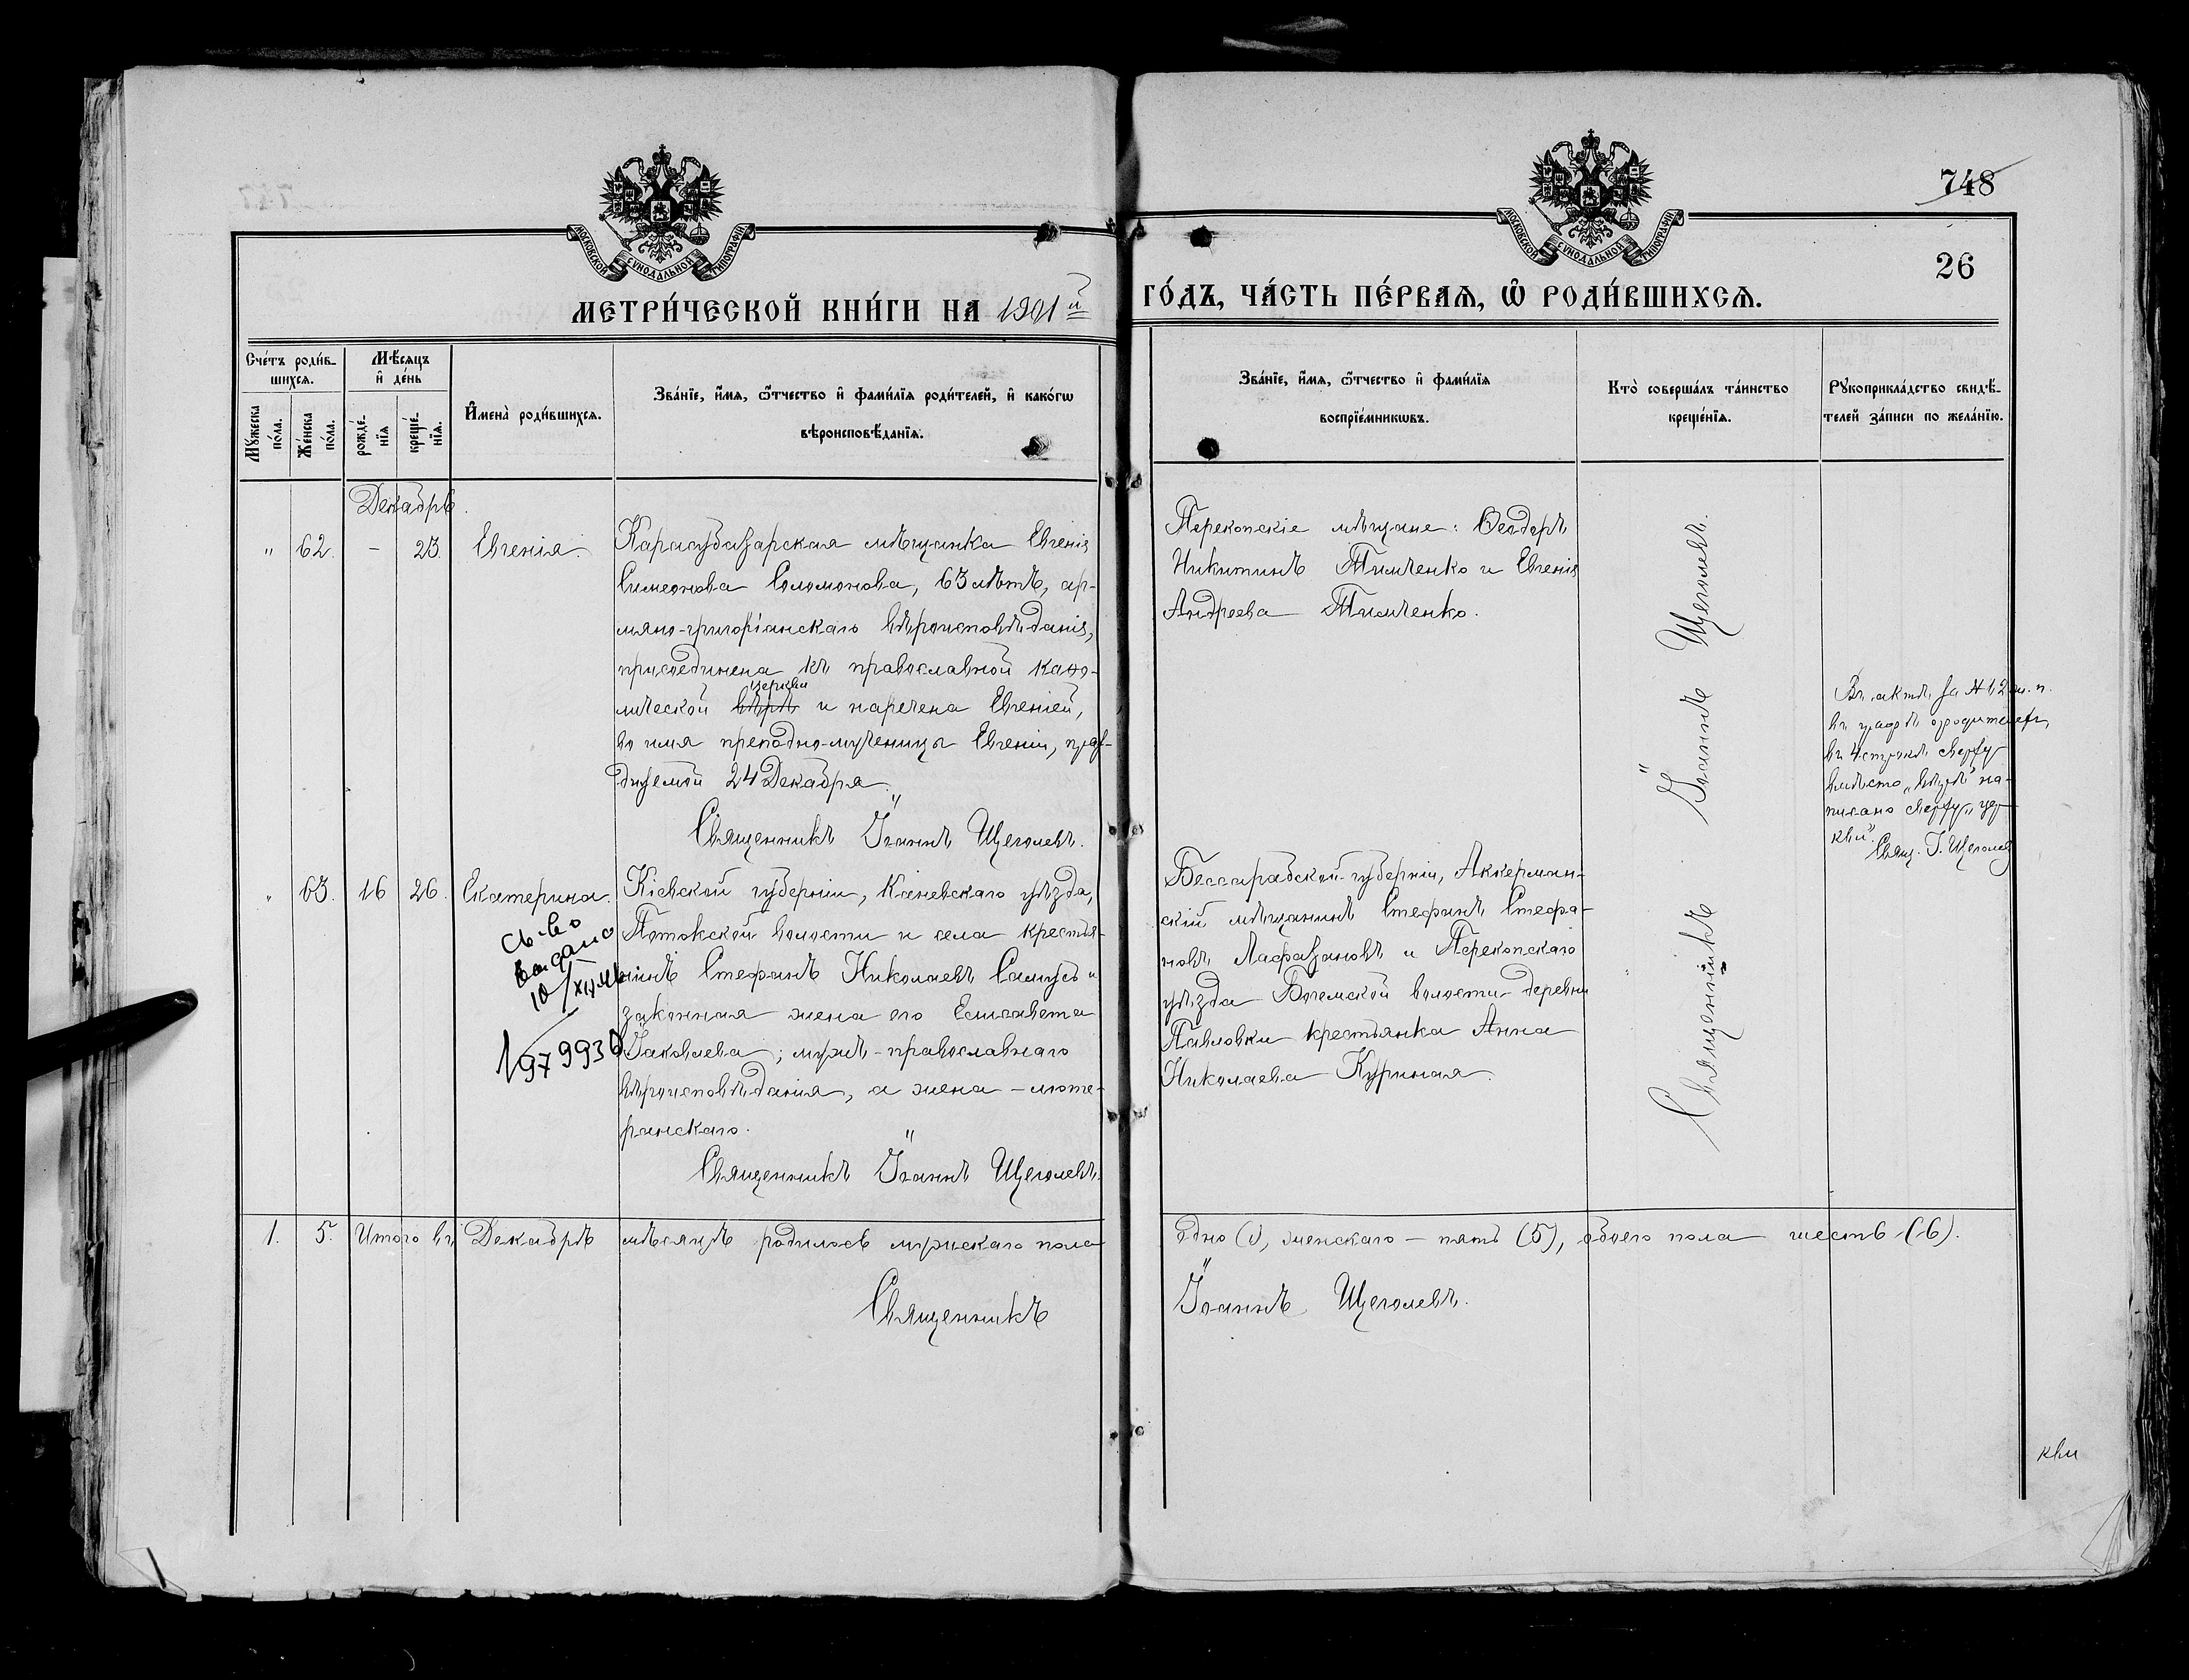 748
26
МОСКОВСКОЙ СѴНОДАЛЬНОЙ ТИПОГРАФІИ
МОСКОВСКОЙ СѴНОДАЛЬНОЙ ТИПОГРАФІИ
МЕТРИ́ЧЕСКОЙ КНИ́ГИ НА 1901й ГО́ДЪ, ЧА́СТЬ ПЕ́РВАѦ, Ѡ҆ РОДИ́ВШИХСѦ.
Сче́тъ роди́в-
шихсѧ.
Мѹжеска по́ла.
Же́нска по́ла.
Мѣ́сяцъ
и҆ де́нь
рожде́-
нїѧ
креще́-
нїѧ.
И҆мена̀ роди́вшихсѧ.
Зва́нїе, и҆́мѧ, ѻ҆́тчество и҆ фами́лїѧ роди́телей, и҆ како́гѡ
вѣроисповѣ́данїѧ.
Зва́нїе, и҆́мѧ, ѻ҆́тчество и҆ фами́лїѧ
воспрїе́мникѡвъ.
Кто̀ соверша́лъ та́инство
креще́нїѧ.
Рꙋкоприкла́дство свидѣ́-
телей за́писи по жела́нїю.
Декабрь.
" 62. – 23. Евгенія.
Карасубазарская мѣщанка Евгенія
Симеонова Соломонова, 63 лѣтъ, ар-
мяно-григоріанскаго вѣроисповѣданія,
присоединена къ православной каѳо-
лической вѣрѣ церкви и наречена Евгеніей,
во имя преподно-мученицы Евгеніи, празд-
дуемой 24 Декабря.
Священникъ Іоаннъ Щеголевъ.
Перекопскіе мѣщане: Ѳеодоръ
Никитинъ Тимченко и Евгенія
Андреева Тимченко.
Священникъ Іоаннъ Щеголевъ.
Въ актѣ за № 62 ж. п.
въ графѣ о родителяхъ,
въ 4 строкѣ сверху
вмѣсто „вѣрѣ" на-
писано сверху „цер-
кви".
Свящ. І. Щеголев
" 63. 16 26. Екатерина.
св-во
выдано
10/XII
1979930
Кіевской губерніи, Каневскаго уѣзда,
Потокской волости и села крестья-
нинъ Стефанъ Николаевъ Самусь и
законная жена его Елисавета
Іаковлева; мужъ - православнаго
вѣроисповѣданія, а жена – люте-
ранскаго.
Священникъ Іоаннъ Щеголевъ.
Бессарабской губерніи, Аккерман-
скій мѣщанинъ Стефанъ Стефа-
новъ Лафазановъ и Перекопскаго
уѣзда Богемской волости деревни
Павловки крестьянка Анна
Николаева Куриная.
1. 5. Итого въ Декабрѣ мѣсяцѣ родилось мужскаго пола одно (1), женскаго – пять (5), обоего пола шесть (6).
Священникъ Іоаннъ Щеголевъ.
кви